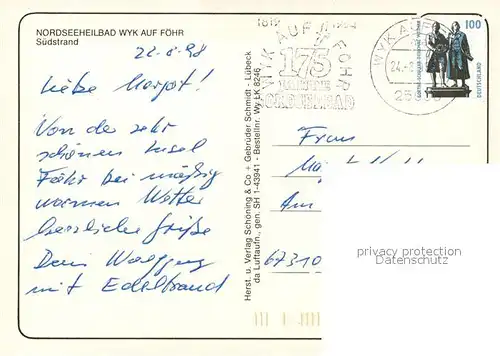 NORDSEEHEILBAD WYK AUF FÖHR
Südstrand
22-8-98
Liebe Margot!
Von der sehr
schönen Insel
Föhr bei mäßig
warmen Wetter
herzliche Grüße
Dein Wolfgang
mit Edeltraud
Herst. u. Verlag Schöning & Co + Gebrüder Schmidt · Lübeck
da Luftaufn., gen. SH 1-43941 - Bestellnr. Wy LK 8246
1819 1994
WYK AUF FÖHR
175
JAHRE
NORDSEEBAD
WYK AUF
24.
100
DEUTSCHLAND
Frau
Am
67310
privacy protection
Datenschutz